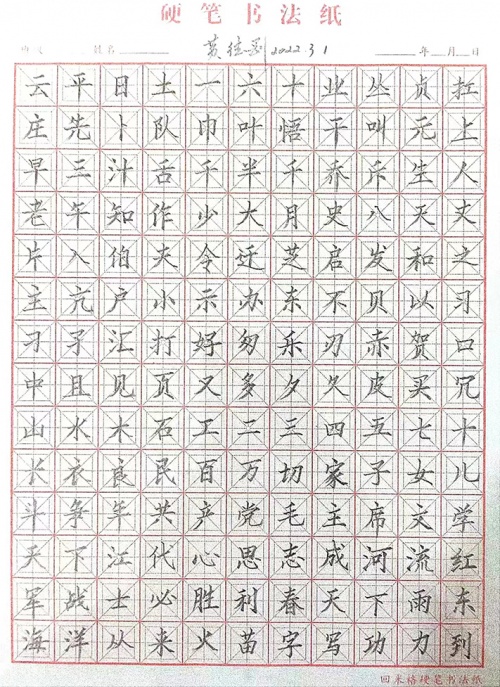 硬笔书法纸
姓名 2022.3.1 年 月 日
云平日土一六十业丛贞扛
庄先卜队巾叶悟平叫元上
早三汁舌千半千乔斥生人
老午知作少大月史八天丈
片入伯夫令迁芝启发和之
主亢户小示办东不贝以习
刁矛汇打好匆乐刃赤贺口
中且见页又多夕久皮买冗
山水木石工二三四五七十
长衣良民百万切家子女儿
斗争年共产党毛主席文学
天下江代心思志成河流红
军战士必胜利春天下雨东
海洋从来火苗字写功力到
回米格硬笔书法纸